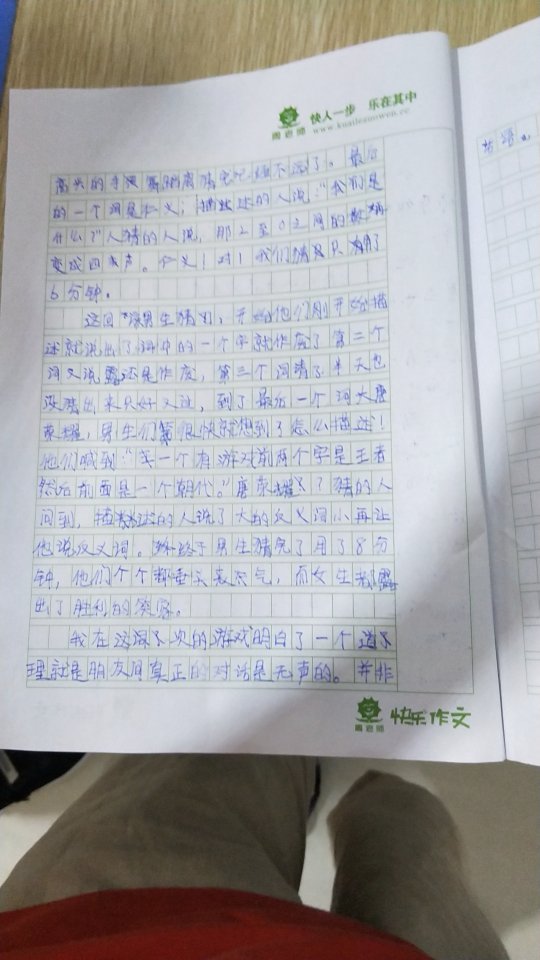 快人一步 乐在其中
周老师
www.kuailezuowen.cc
言语。
高兴的 离 猜完 不远了。最后
的一个词是仁义；描述的人说："我们是
什么？"人猜的人说，那2至0之间的数
变成四声。仁义！对！我们猜只用了
6分钟。
这回 男生猜 ，开始他们刚开始描
述就说出了词中的一个字就作废了第二个
词又说露还是作废，第三个词猜了半天也
没猜出来只好又过，到了最后一个词大唐
荣耀，男生们 很快就想到了怎么描述！
他们喊到"关一个有游戏前两个字是王者
然后前面是一个朝代。"唐荣耀？猜的人
问到，描述的人说了大的反义词小再让
他说反义词。终于男生猜完了用了8分
钟，他们个个都垂头丧气，而女生都露
出了胜利的笑容。
我在这 次的游戏明白了一个道
理就是朋友间真正的对话是无声的。并非
周老师
快乐作文